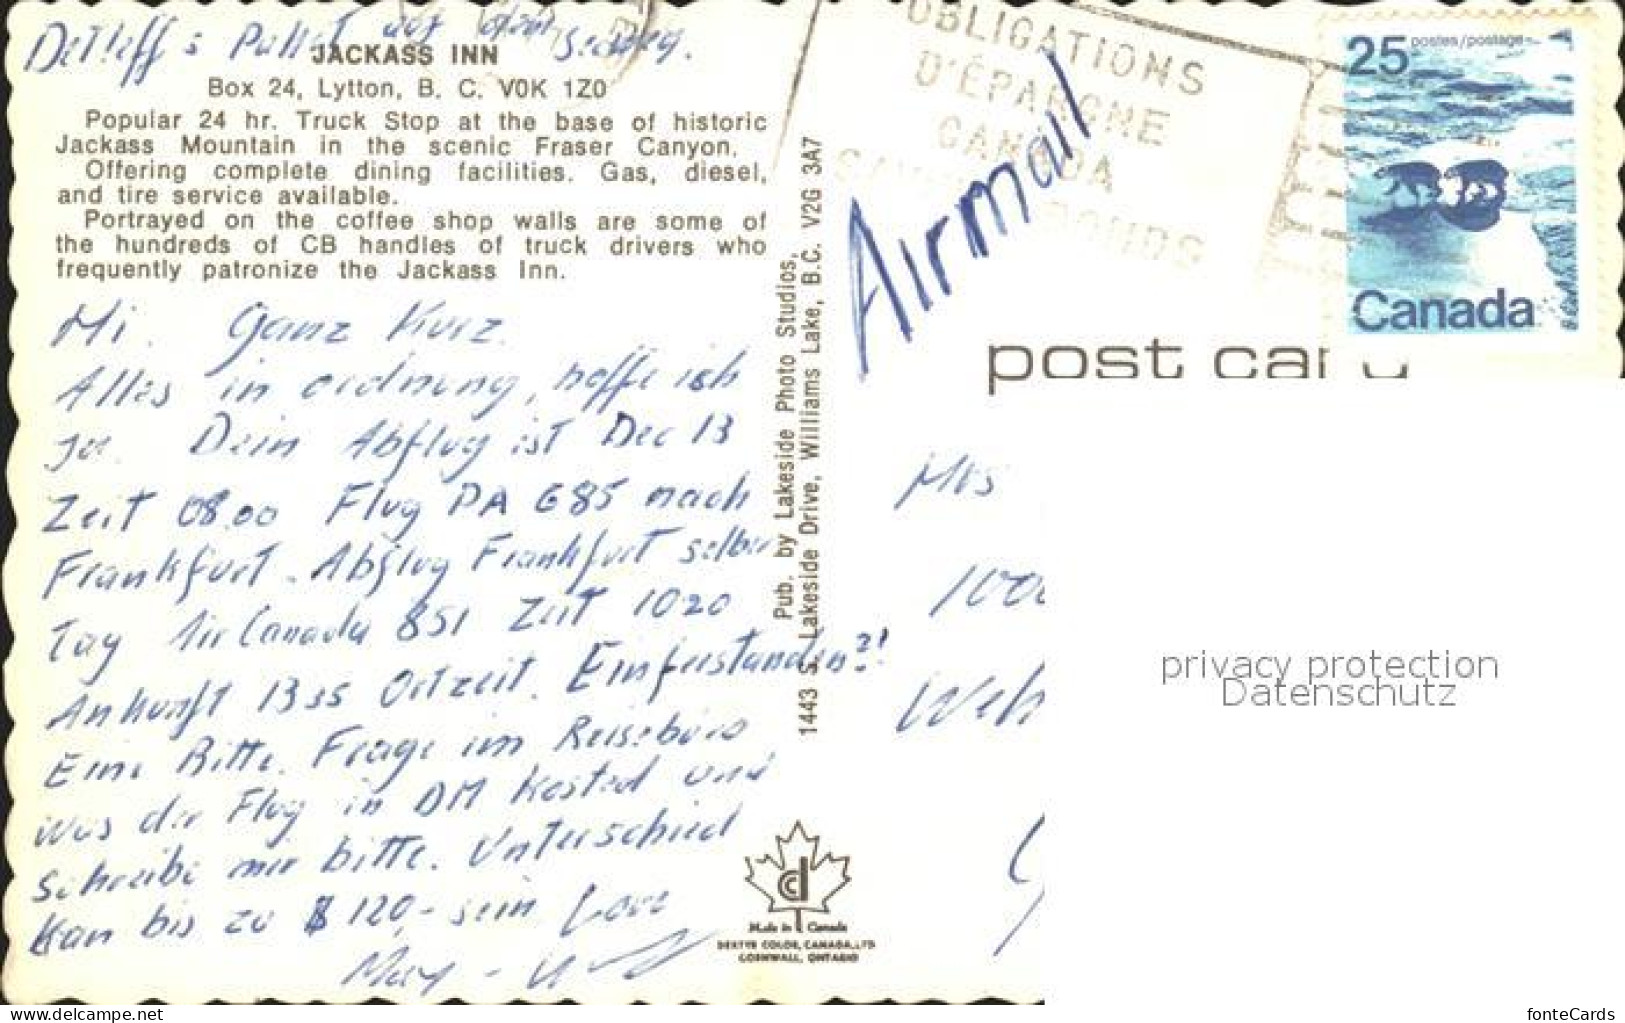 Detleff's Paket auf dem Seeweg.
JACKASS INN
Box 24, Lytton, B. C. V0K 1Z0
Popular 24 hr. Truck Stop at the base of historic
Jackass Mountain in the scenic Fraser Canyon.
Offering complete dining facilities. Gas, diesel,
and tire service available.
Portrayed on the coffee shop walls are some of
the hundreds of CB handles of truck drivers who
frequently patronize the Jackass Inn.
Hi. Ganz Kurz.
Alles in ordnung, hoffe ich
ja. Dein Abflug ist Dec 13
Zeit 08.00 Flug PA 685 nach
Frankfurt. Abflug Frankfurt selben
Tag Air Canada 851 Zeit 1020
Ankunft 1335 Ortzeit. Einferstanden?!
Eine Bitte. Frage im Reisebüro
was der Flug in DM kosted und
schreibe mir bitte. Unterschied
kan bis zu $ 120,- sein. Love
Pub. by Lakeside Photo Studios,
1443 S. Lakeside Drive, Williams Lake, B.C. V2G 3A7
OBLIGATIONS
D'ÉPARGNE
CANADA
BONDS
Airmail
25 postes/postage
Canada
post card
Mrs
Made in Canada
DEXTER COLOR, CANADA, LTD
CORNWALL, ONTARIO
privacy protection
Datenschutz
www.delcampe.net
fonteCards